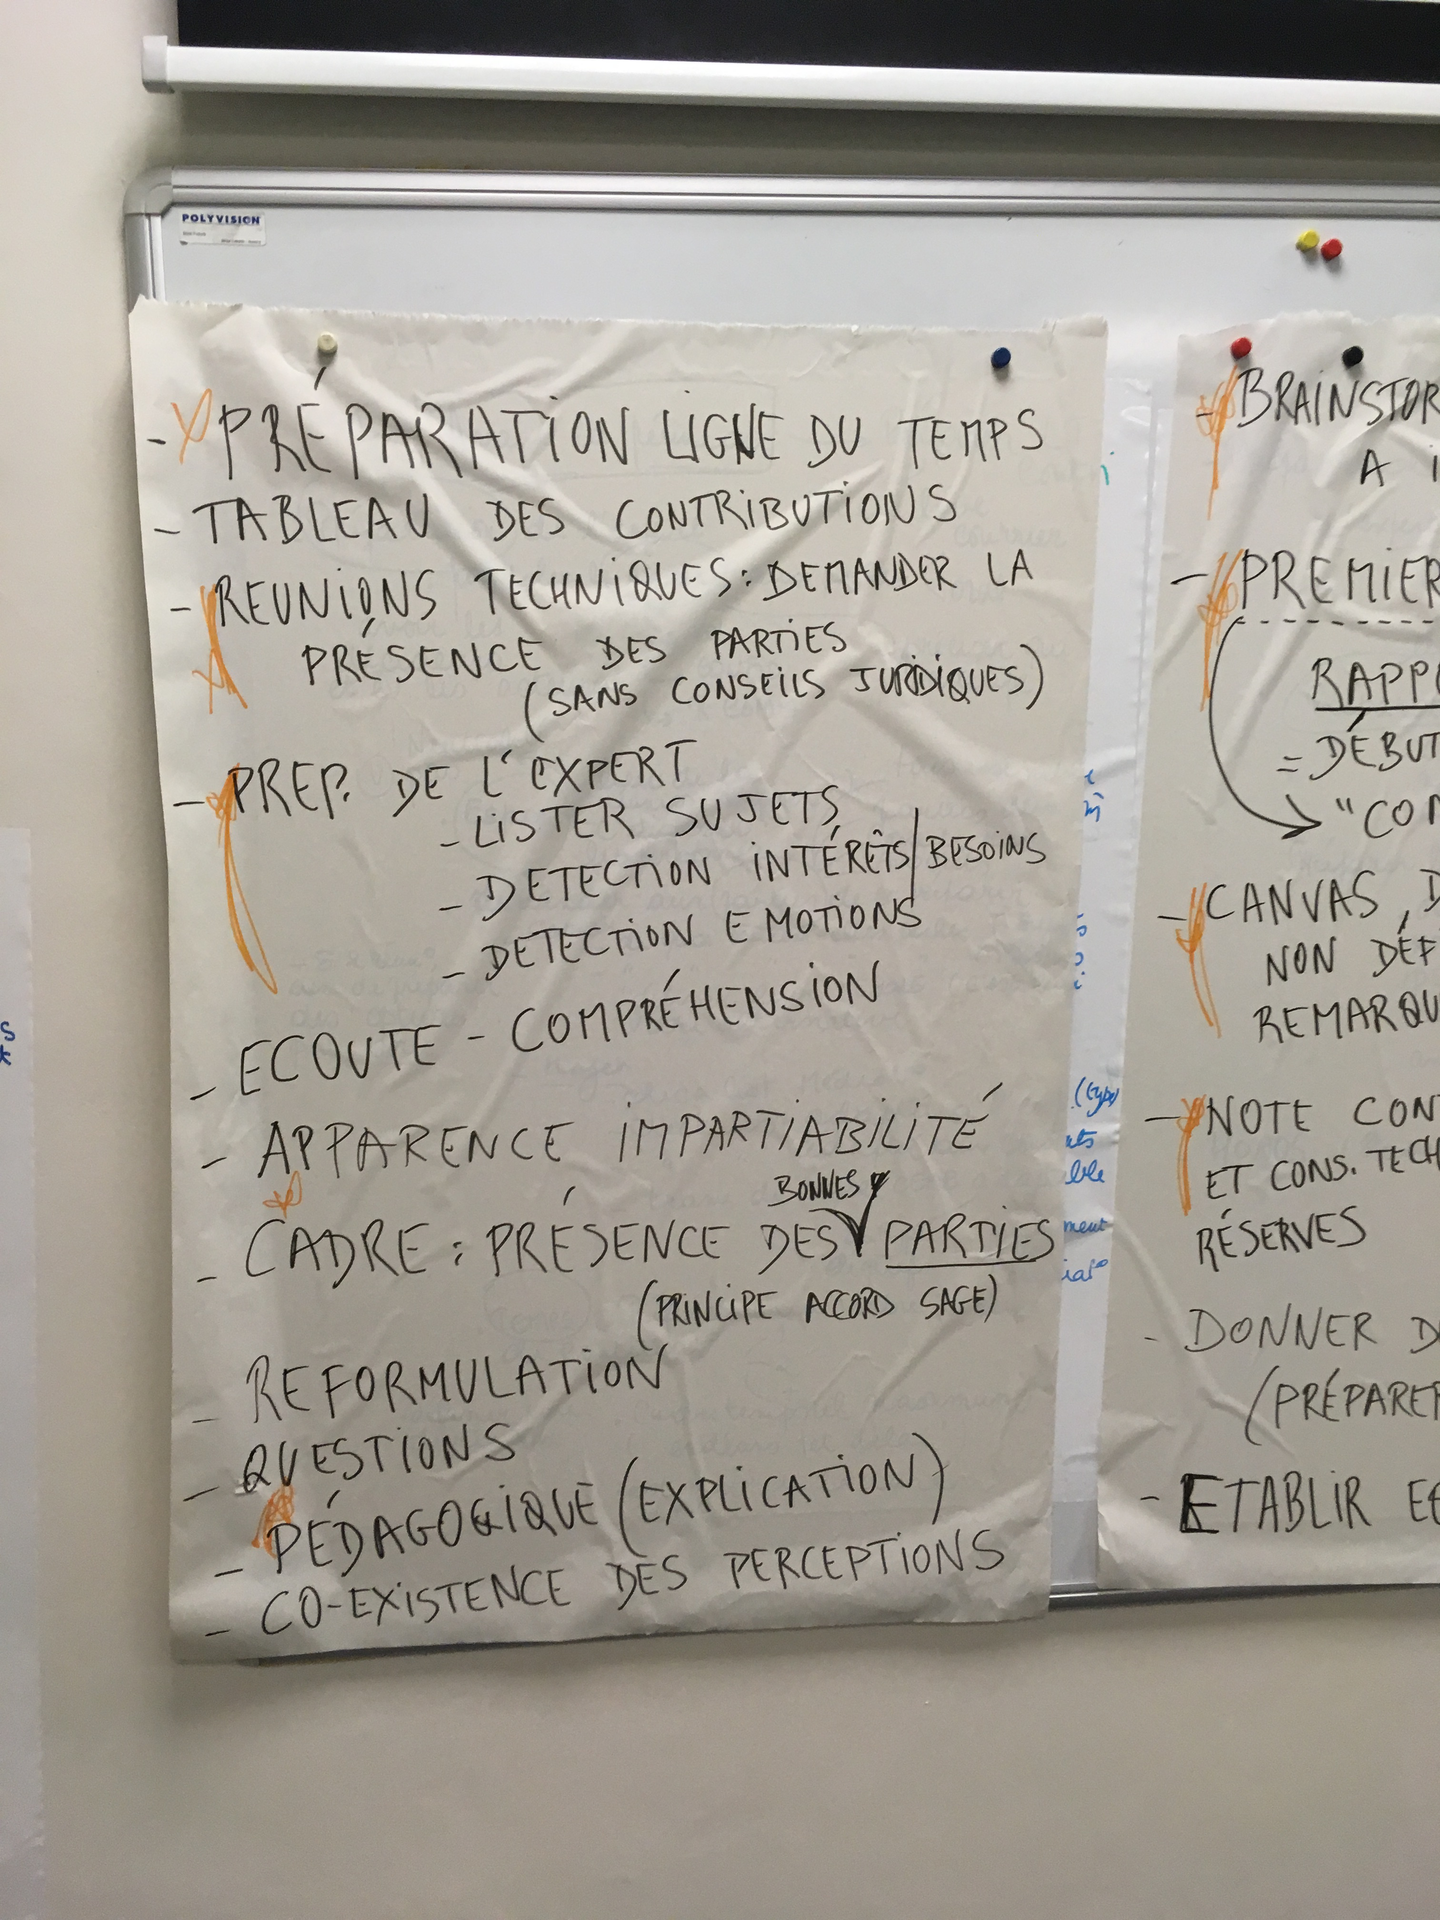 POLYVISION
- PRÉPARATION LIGNE DU TEMPS
- TABLEAU DES CONTRIBUTIONS
- REUNIONS TECHNIQUES : DEMANDER LA
PRÉSENCE DES PARTIES
(SANS CONSEILS JURIDIQUES)
- PREP. DE L'EXPERT
- LISTER SUJETS
- DETECTION INTÉRÊTS / BESOINS
- DETECTION EMOTIONS
- ECOUTE - COMPRÉHENSION
- APPARENCE IMPARTIABILITÉ
BONNES
- CADRE : PRÉSENCE DES PARTIES
(PRINCIPE ACCORD SAGE)
- REFORMULATION
- QUESTIONS
- PÉDAGOGIQUE (EXPLICATION)
- CO-EXISTENCE DES PERCEPTIONS
- BRAINSTOR
A i
- PREMIER
RAPPO
= DÉBUT
"CON
- CANVAS, D
NON DÉF
REMARQU
- NOTE CON
ET CONS. TECH
RÉSERVES
- DONNER D
(PRÉPARER
- ETABLIR